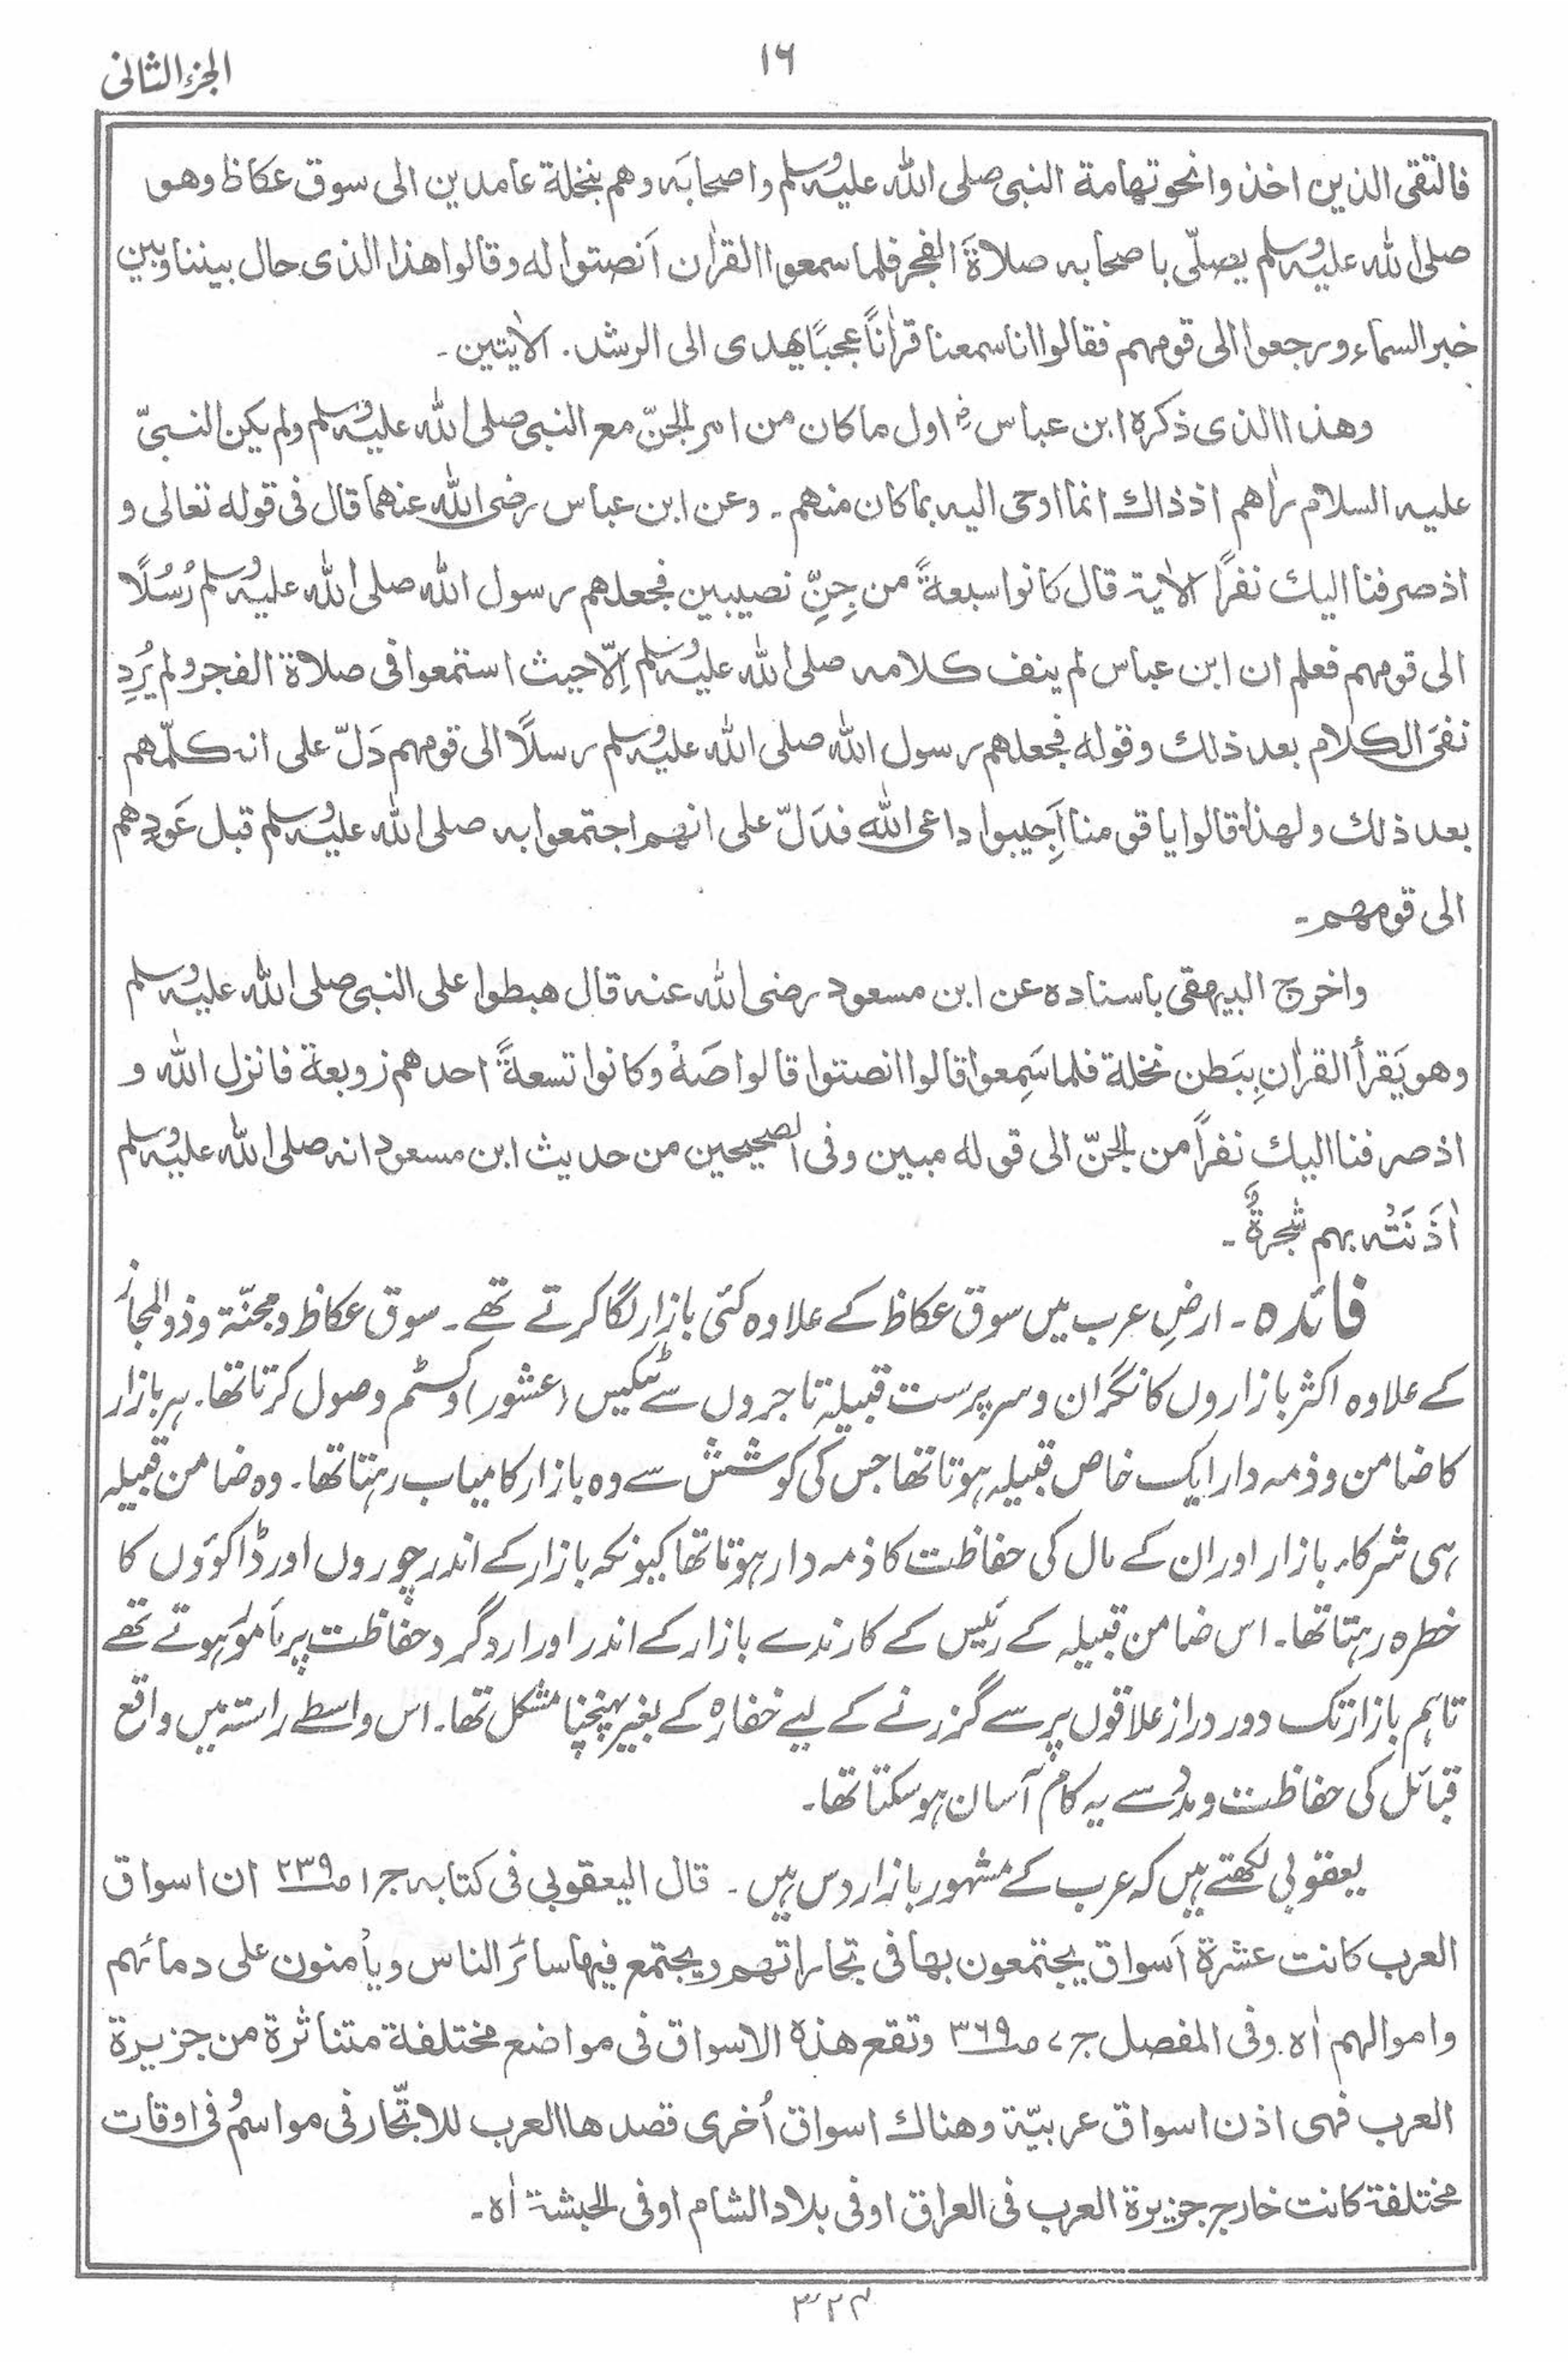 الجزء الثانی
١٦
فالتقی الذین اخذوا نحو تهامة النبی صلی الله علیه وسلم واصحابَه وهم بنخلة عامدین الی سوق عکاظ وهو
صلی الله علیه وسلم یصلّی باصحابه صلاةَ الفجر فلما سمعوا القراٰن اَنصتوا له وقالوا هذا الذی حال بیننا وبین
خبر السماء ورجعوا الی قومهم فقالوا انا سمعنا قراٰناً عجبًا یهدی الی الرشد. الاٰیتین۔
وهذا الذی ذکره ابن عباسؓ اول ما کان من امر الجنّ مع النبی صلی الله علیه وسلم ولم یکن النبیّ
علیه السلام رٰاهم اذ ذاك انما اوحی الیه بما کان منهم۔ وعن ابن عباس رضی الله عنهما قال فی قوله تعالی و
اذ صرفنا الیك نفرًا الاٰیة قال کانوا سبعةً من جِنِّ نصیبین فجعلهم رسول الله صلی الله علیه وسلم رُسُلًا
الی قومهم فعلم ان ابن عباس لم ینف کلامه صلی الله علیه وسلم اِلّا حیث استمعوا فی صلاة الفجر ولم یُرِدِ
نفیَ الکلام بعد ذلك وقوله فجعلهم رسول الله صلی الله علیه وسلم رسلًا الی قومهم دَلّ علی انه کلّمهم
بعد ذلك ولهذا قالوا یا قومنا اَجِیبوا داعی الله فدَلّ علی انهم اجتمعوا به صلی الله علیه وسلم قبل عَودِهم
الی قومهم۔
واخرج البیهقی باسناده عن ابن مسعود رضی الله عنه قال هبطوا علی النبی صلی الله علیه وسلم
وهو یَقرأ القراٰن بِبَطن نخلة فلما سَمِعوا قالوا انصتوا قالوا صَهْ وکانوا تسعةً احدهم زوبعة فانزل الله و
اذ صرفنا الیك نفراً من الجنّ الی قوله مبین وفی الصحیحین من حدیث ابن مسعود انه صلی الله علیه وسلم
اٰذَنَتْه بهم شجرةٌ۔
فائدہ۔ ارضِ عرب میں سوق عکاظ کے علاوہ کئی بازار لگا کرتے تھے۔ سوق عکاظ و مجنّۃ و ذو المجاز
کے علاوہ اکثر بازاروں کا نگران و سرپرست قبیلہ تاجروں سے ٹیکس (عشور) و کسٹم وصول کرتا تھا۔ ہر بازار
کا ضامن و ذمہ دار ایک خاص قبیلہ ہوتا تھا جس کی کوشش سے وہ بازار کامیاب رہتا تھا۔ وہ ضامن قبیلہ
ہی شرکاء بازار اور ان کے مال کی حفاظت کا ذمہ دار ہوتا تھا کیونکہ بازار کے اندر چوروں اور ڈاکوؤں کا
خطرہ رہتا تھا۔ اس ضامن قبیلہ کے رئیس کے کارندے بازار کے اندر اور اردگرد حفاظت پر مأمور ہوتے تھے
تاہم بازار تک دور دراز علاقوں پر سے گزرنے کے لیے خفارہ کے بغیر پہنچنا مشکل تھا۔ اس واسطے راستہ میں واقع
قبائل کی حفاظت و مدد سے یہ کام آسان ہو سکتا تھا۔
یعقوبی لکھتے ہیں کہ عرب کے مشہور بازار دس ہیں۔ قال الیعقوبی فی کتابه ج ۱ ص ۲۳۹ ان اسواق
العرب کانت عشرة اَسواق یجتمعون بها فی تجاراتهم ویجتمع فیها سائر الناس ویأمنون علی دمائهم
واموالهم اٰه. وفی المفصل ج ۷ ص ۳۶۹ وتقع هذه الاسواق فی مواضع مختلفة متناثرة من جزیرة
العرب فهی اذن اسواق عربیّة وهناك اسواق اُخری قصدها العرب للاتّجار فی مواسمُ فی اوقات
مختلفة کانت خارج جزیرة العرب فی العراق او فی بلاد الشام او فی الحبشة اٰه۔